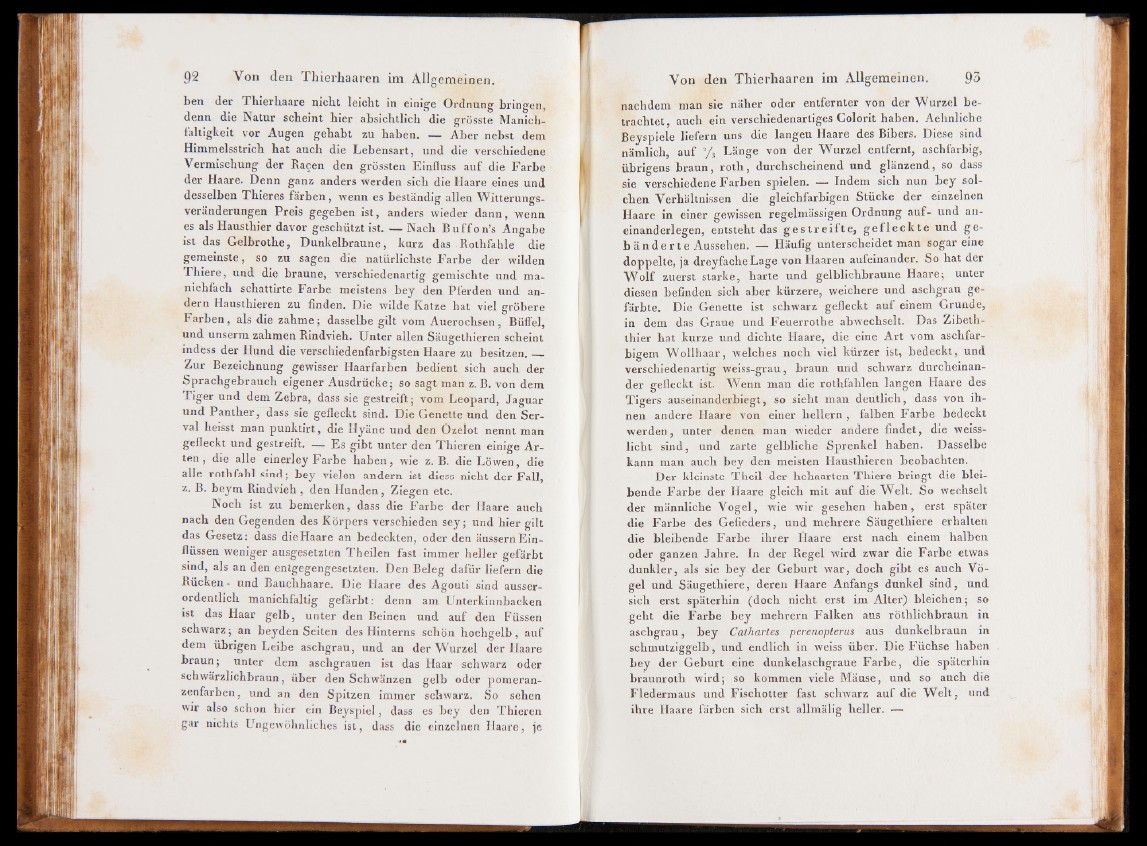 92 Von den Thierhaaren im Allgemeinen.
ben der Thierhaare nicht leicht in einige Ordnung bringen,
denn die Natur scheint hier absichtlich die grösste Manich-
faltigkeit vor Augen gehabt zu haben. — Aber nebst dem
Himmelsstrich hat auch die Lebensart, und die verschiedene
Vermischung der Raçen den grössten Einfluss auf die Farbe
der Haare. Denn ganz anders werden sich die Haare eines und
desselben Thieres färben, wenn es beständig allen Witterungs-
veränderungen Preis gegeben ist, anders wieder dann, wenn
es als Hausthier davor geschützt ist. — Nach Buffon's Angabe
ist das Gelbrothe, Dunkelbraune, kurz das Rothfahle die
gemeinste, so zu sagen die natürlichste Farbe der wilden
Thiere, und die braune, verschiedenartig gemischte und ma-
nichfach schattirte Farbe meistens bey den Pferden und an-
dern Hausthieren zu finden. Die wilde Katze hat viel gröbere
Farben, als die zahme; dasselbe gilt vom Auerochsen, Büffel,
und unserm zahmen Rindvieh. Unter allen Säugethieren scheint
indess der Hund die verschiedenfarbigsten Haare zu besitzen. —
Zur Bezeichnung gewisser Haarfarben bedient sich auch der
Sprachgebrauch eigener Ausdrücke; so sagt man z. B. von dem
Tiger und dem Zebra, dass sie gestreift; vom Leopard, Jaguar
und Panther, dass sie gefleckt sind. Die Genette und den Ser-
val heisst man punktirt, die Hyäne und den Ozelot nennt man
gefleckt und gestreift. — Es gibt unter den Thieren einige Ar-
ten, die alle einerley Farbe haben, wie z. B. die Löwen, die
alle rothfahl sind; bey vielen andern ist diess nicht der Fall,
z. B. beym Rindvieh, den Hunden, Ziegen etc.
Noch ist zu bemerken, dass die Farbe der Haare auch
nach den Gegenden des Körpers verschieden sey; und hier gilt
das Gesetz: dass die Haare an bedeckten, oder den äussern Ein-
flüssen weniger ausgesetzten Theilen fast immer heller gefärbt
sind, als an den entgegengesetzten. Den Beleg dafür liefern die
Rücken- und Bauchhaare. Die Haare des Agouti sind ausser-
ordentlich manichfaltig gefärbt: denn am Unterkinnbacken
ist das Haar gelb, unter den Beinen und auf den Füssen
schwarz; an beyden Seiten des Hinterns schön hochgelb, auf
dem übrigen Leibe aschgrau, und an der Wurzel der Haare
braun; unter dem aschgrauen ist das Haar schwarz oder
schwärzlichbraun, über den Schwänzen gelb oder pomeran-
zenfarben, und an den Spitzen immer schwarz. So sehen
wir also schon hier ein Beyspiel, dass es bey den Thieren
gar nichts Ungewöhnliches ist, dass die einzelnen Haare, je
Von den Thierhaaren im Allgemeinen. 93
nachdem man sie näher oder entfernter von der Wurzel be-
trachtet, auch ein verschiedenartiges Colorit haben. Aehnliche
Beyspiele liefern uns die langen Haare des Bibers. Diese sind
nämlich, auf ⅔ Länge von der Wurzel entfernt, aschfarbig,
übrigens braun, roth, durchscheinend und glänzend, so dass
sie verschiedene Farben spielen. — Indem sich nun bey sol-
chen Verhältnissen die gleichfarbigen Stücke der einzelnen
Haare in einer gewissen regelmässigen Ordnung auf- und an-
einanderlegen, entsteht das gestreifte, gefleckte und ge-
bänderte Aussehen. — Häufig unterscheidet man sogar eine
doppelte, ja dreyfache Lage von Haaren aufeinander. So hat der
Wolf zuerst starke, harte und gelblichbraune Haare; unter
diesen befinden sich aber kürzere, weichere und aschgrau ge-
färbte. Die Genette ist schwarz gefleckt auf einem Grunde,
in dem das Graue und Feuerrothe abwechselt. Das Zibeth-
thier hat kurze und dichte Haare, die eine Art vom aschfar-
bigem Wollhaar, welches noch viel kürzer ist, bedeckt, und
verschiedenartig weiss-grau, braun und schwarz durcheinan-
der gefleckt ist. Wenn man die rothfahlen langen Haare des
Tigers auseinanderbiegt, so sieht man deutlich, dass von ih-
nen andere Haare von einer hellern, falben Farbe bedeckt
werden, unter denen man wieder andere findet, die weiss-
licht sind, und zarte gelbliche Sprenkel haben. Dasselbe
kann man auch bey den meisten Hausthieren beobachten.
Der kleinste Theil der behaarten Thiere bringt die blei-
bende Farbe der Haare gleich mit auf die Welt. So wechselt
der männliche Vogel, wie wir gesehen haben, erst später
die Farbe des Gefieders, und mehrere Säugethiere erhalten
die bleibende Farbe ihrer Haare erst nach einem halben
oder ganzen Jahre. In der Regel wird zwar die Farbe etwas
dunkler, als sie bey der Geburt war, doch gibt es auch Vö-
gel und Säugethiere, deren Haare Anfangs dunkel sind, und
sich erst späterhin (doch nicht erst im Alter) bleichen; so
geht die Farbe bey mehrern Falken aus röthlichbraun in
aschgrau, bey Cathartes perenopterus aus dunkelbraun in
schmutziggelb, und endlich in weiss über. Die Füchse haben
bey der Geburt eine dunkelaschgraue Farbe, die späterhin
braunroth wird; so kommen viele Mäuse, und so auch die
Fledermaus und Fischotter fast schwarz auf die Welt, und
ihre Haare färben sich erst allmälig heller. —